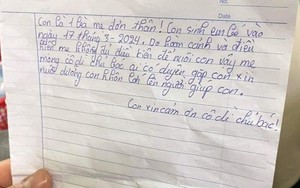 Con là 1 bà mẹ đơn thân! Con sinh em bé vào
ngày 17 tháng 3 - 2024. Do hoàn cảnh và điều
kiện mẹ không đủ điều kiện để nuôi con vậy mẹ
mong cô dì chú bác ai có duyên gặp con xin
nuôi dưỡng con khôn lớn lên người giúp con.
Con xin cảm ơn cô dì chú bác!